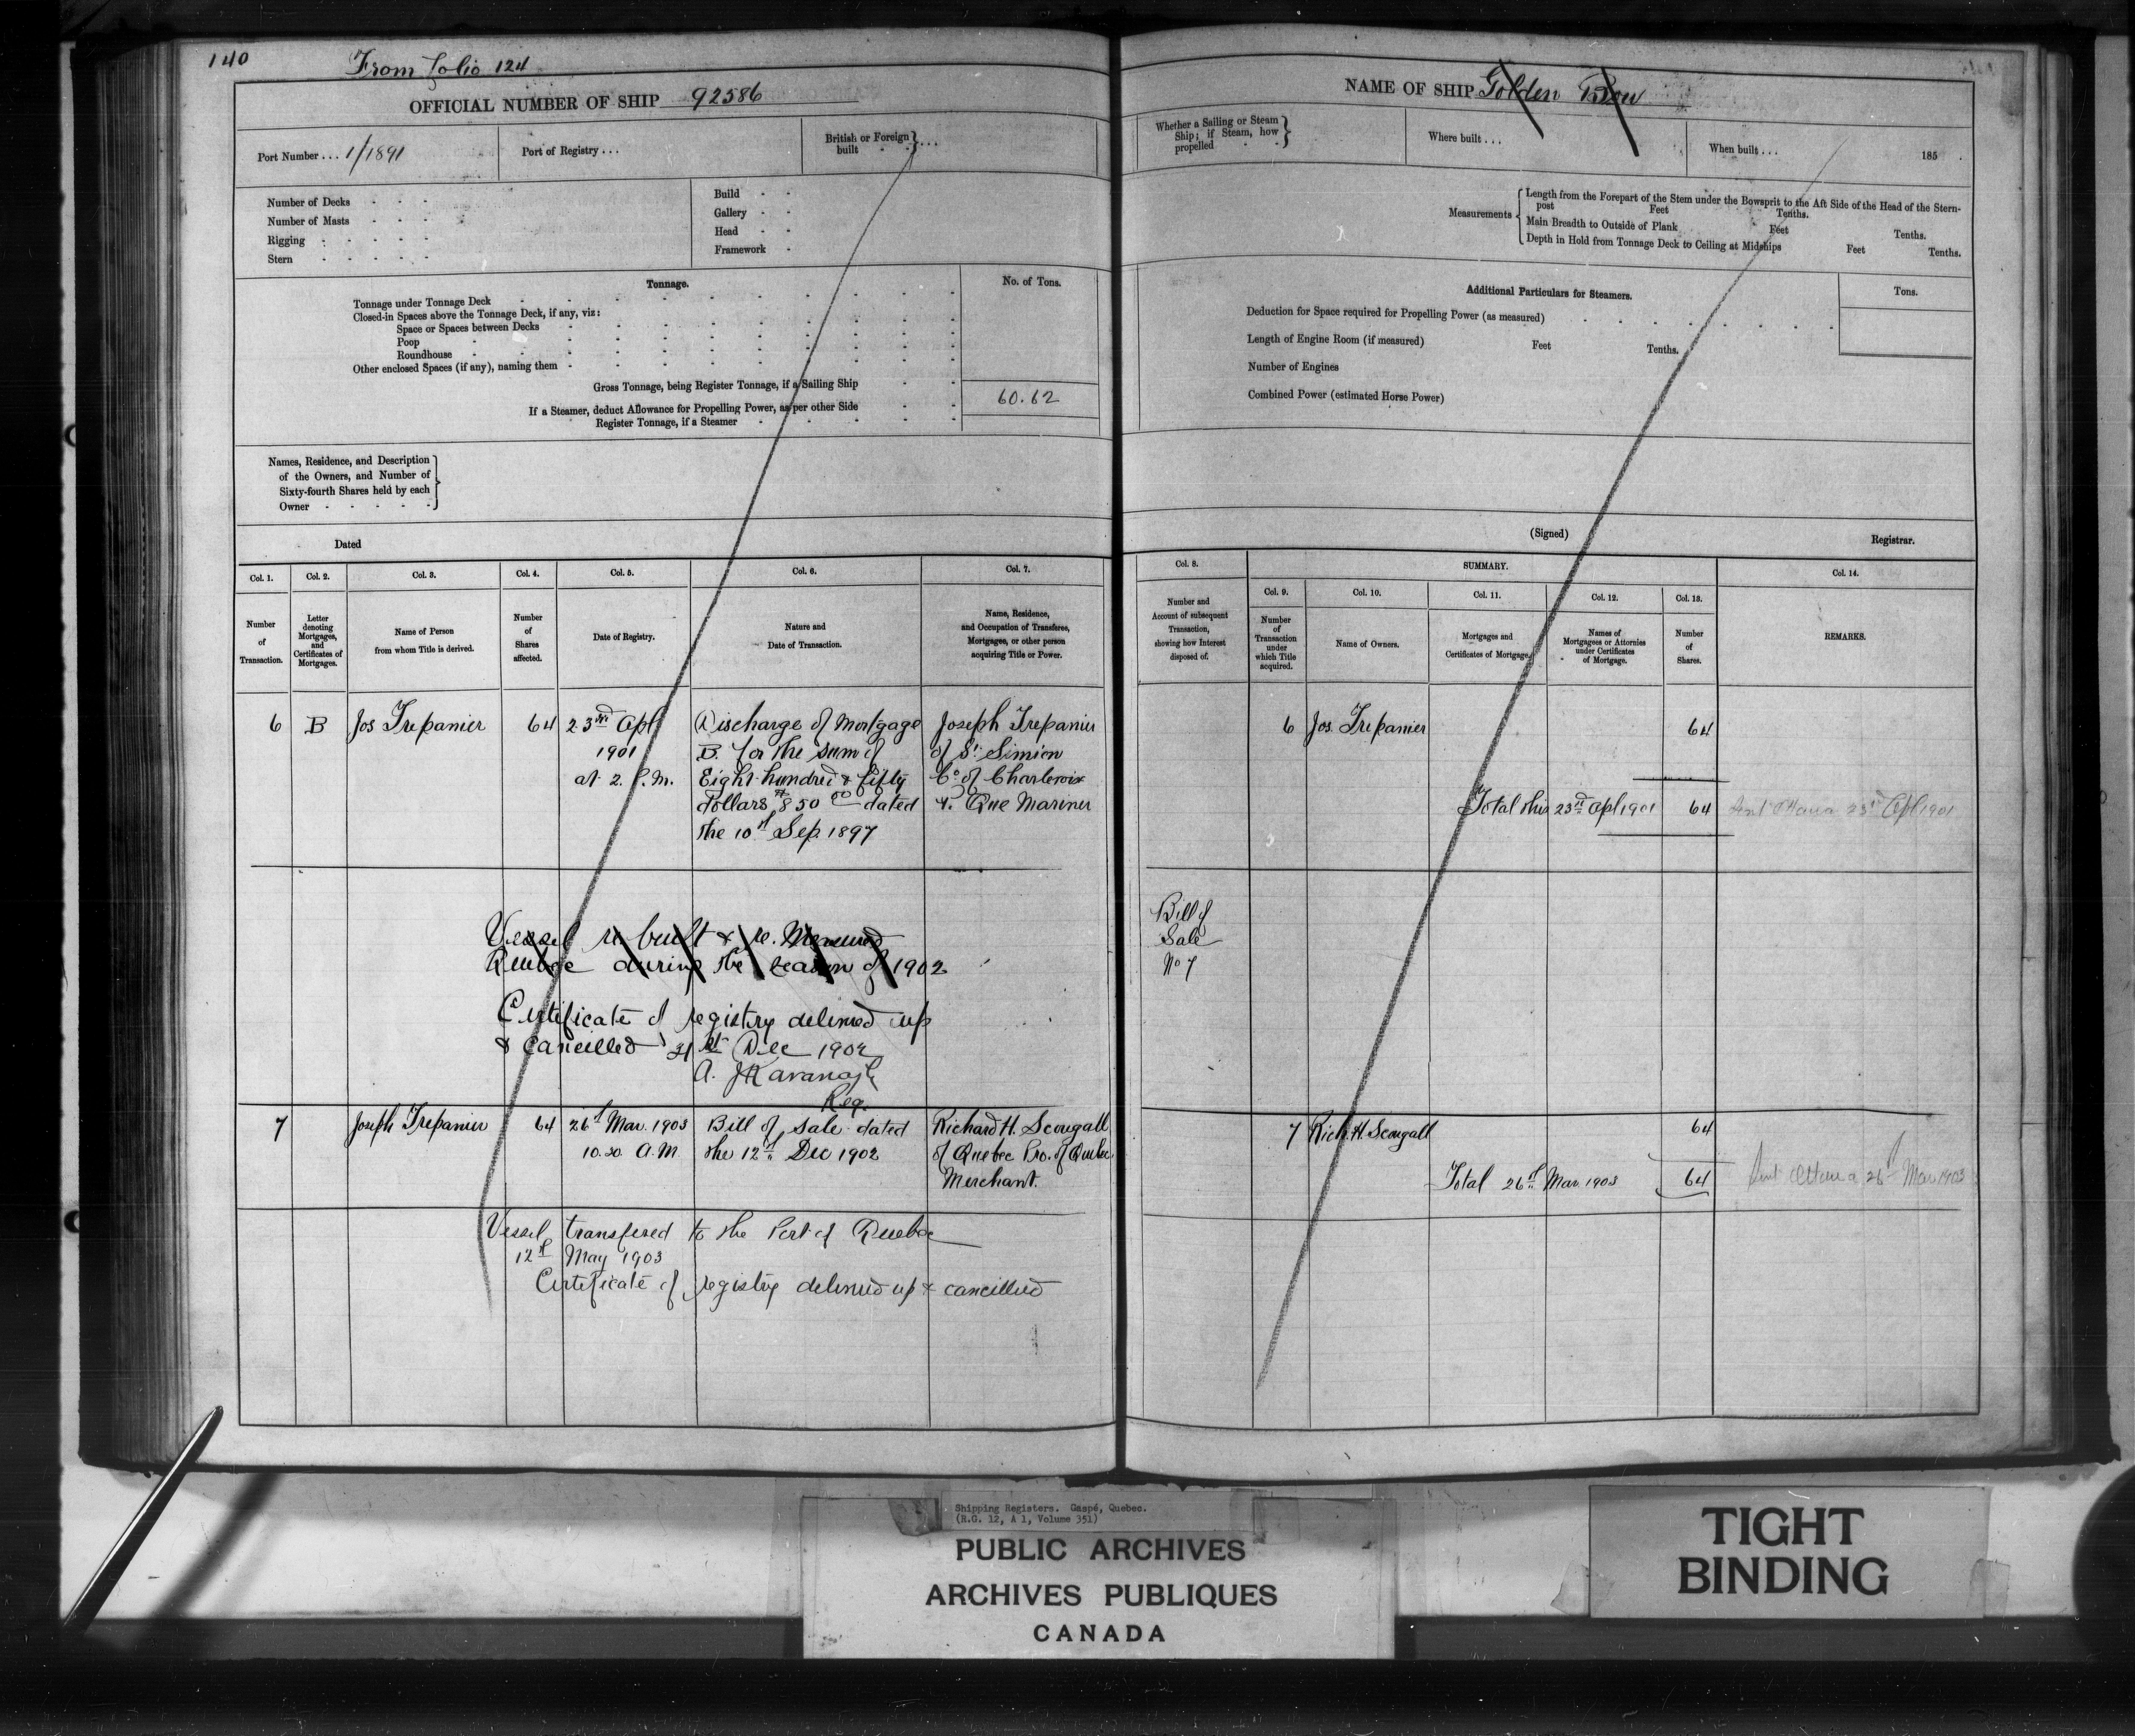 140
From folio 124
OFFICIAL NUMBER OF SHIP 92586
Port Number . . . 1/1891
Port of Registry . . .
British or Foreign
built . . .
Number of Decks
Number of Masts
Rigging
Stern
Build
Gallery
Head
Framework
Tonnage.
No. of Tons.
Tonnage under Tonnage Deck
Closed-in Spaces above the Tonnage Deck, if any, viz:
Space or Spaces between Decks
Poop
Roundhouse
Other enclosed Spaces (if any), naming them
Gross Tonnage, being Register Tonnage, if a Sailing Ship
If a Steamer, deduct Allowance for Propelling Power, as per other Side
60.62
Register Tonnage, if a Steamer
Names, Residence, and Description
of the Owners, and Number of
Sixty-fourth Shares held by each
Owner
Dated
Col. 1.
Col. 2.
Col. 3.
Col. 4.
Col. 5.
Col. 6.
Col. 7.
Number
of
Transaction.
Letter
denoting
Mortgages,
and
Certificates of
Mortgages.
Name of Person
from whom Title is derived.
Number
of
Shares
affected.
Date of Registry.
Nature and
Date of Transaction.
Name, Residence,
and Occupation of Transferee,
Mortgagee, or other person
acquiring Title or Power.
6
B
Jos Trepanier
64
23rd Apl
1901
at 2. P.M.
Discharge of Mortgage
B. for the sum of
Eight hundred & fifty
Dollars $850 00 dated
the 10th Sep 1897
Joseph Trepanier
of St Simion
Co of Charlevoix
P. Que Mariner
Vessel re built & re. Measured
Quebec during the season of 1902
Certificate of registry delivered up
& Cancelled 31st Dec 1902
A. J Kavanagh
Reg.
7
Joseph Trepanier
64
26th Mar. 1903
10.30 A.M.
Bill of Sale dated
the 12th Dec 1902
Richard H. Scougall
of Quebec Pro. of Quebec
Merchant.
Vessel transfered to the Port of Quebec
12th May 1903
Certificate of registry delivered up & cancelled
NAME OF SHIP Golden Bow
Whether a Sailing or Steam
Ship; if Steam, how
propelled
Where built . . .
When built . . .
185 .
Measurements
Length from the Forepart of the Stem under the Bowsprit to the Aft Side of the Head of the Stern-
post Feet Tenths.
Main Breadth to Outside of Plank Feet Tenths.
Depth in Hold from Tonnage Deck to Ceiling at Midships Feet Tenths.
Additional Particulars for Steamers.
Tons.
Deduction for Space required for Propelling Power (as measured)
Length of Engine Room (if measured) Feet Tenths.
Number of Engines
Combined Power (estimated Horse Power)
(Signed)
Registrar.
Col. 8.
SUMMARY.
Col. 14.
Col. 9.
Col. 10.
Col. 11.
Col. 12.
Col. 13.
Number and
Account of subsequent
Transaction,
showing how Interest
disposed of.
Number
of
Transaction
under
which Title
acquired.
Name of Owners.
Mortgages and
Certificates of Mortgage.
Names of
Mortgagees or Attornies
under Certificates
of Mortgage.
Number
of
Shares.
REMARKS.
6
Jos. Trepanier
64
Total this 23rd Apl 1901
64
Sent Ottawa 23rd Apl 1901
Bill of
Sale
No 7
7
Rich. H. Scougall
64
Total 26th Mar. 1903
64
Sent Ottawa 26th Mar 1903
Shipping Registers. Gaspé, Quebec.
(R.G. 12, A 1, Volume 351)
PUBLIC ARCHIVES
ARCHIVES PUBLIQUES
CANADA
TIGHT
BINDING